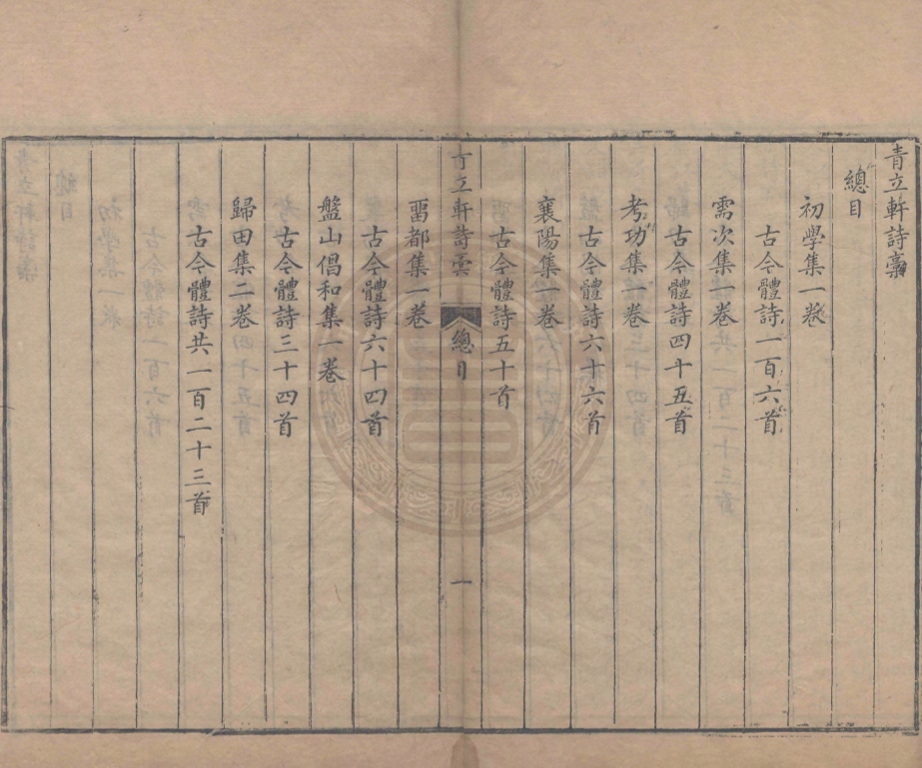 青立軒詩藳
總目
初學集一卷
古今體詩一百六首
需次集一卷
古今體詩四十五首
考功集一卷
古今體詩六十六首
襄陽集一卷
古今體詩五十首
青立軒詩藳
總目
一
畱都集一卷
古今體詩六十四首
盤山倡和集一卷
古今體詩三十四首
歸田集二卷
古今體詩共一百二十三首